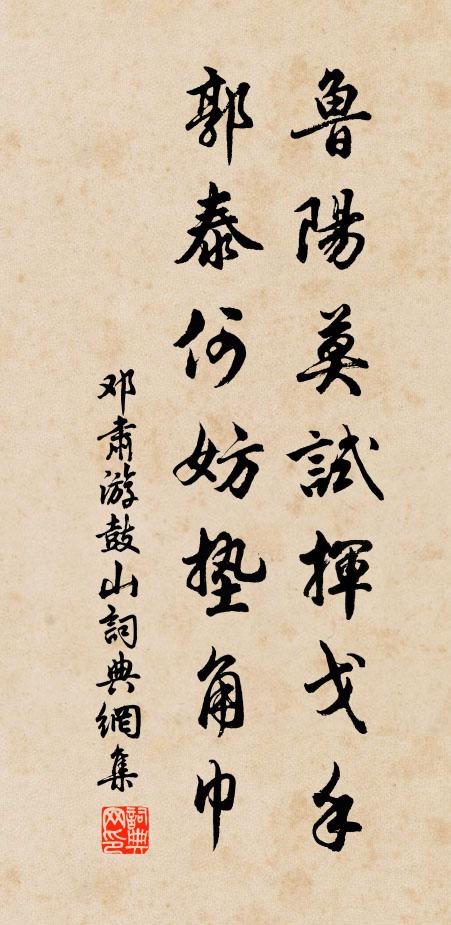 魯陽莫試揮戈手
郭泰何妨墊角巾
邓肅游鼓山詞典網集
詞典网印